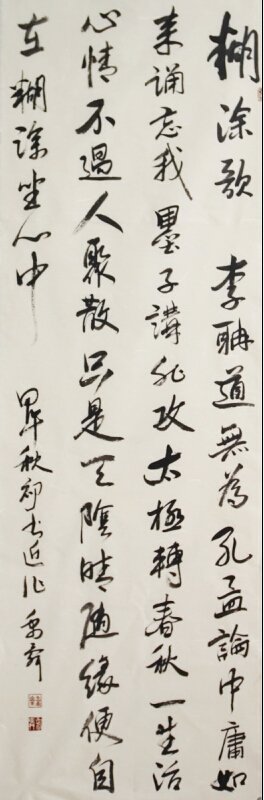 糊涂歌 李聃道無為孔孟論中庸如
来誦忘我墨子講非攻太極轉春秋一生活
心情不過人聚散只是天陰晴随緣便自
在糊涂坐心中
秋初书近作